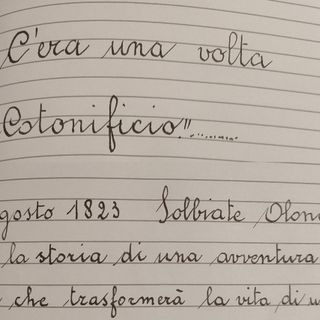 C'era una volta
Cotonificio"........
gosto 1823 Solbiate Olon
la storia di una avventura
che trasformerà la vita di u